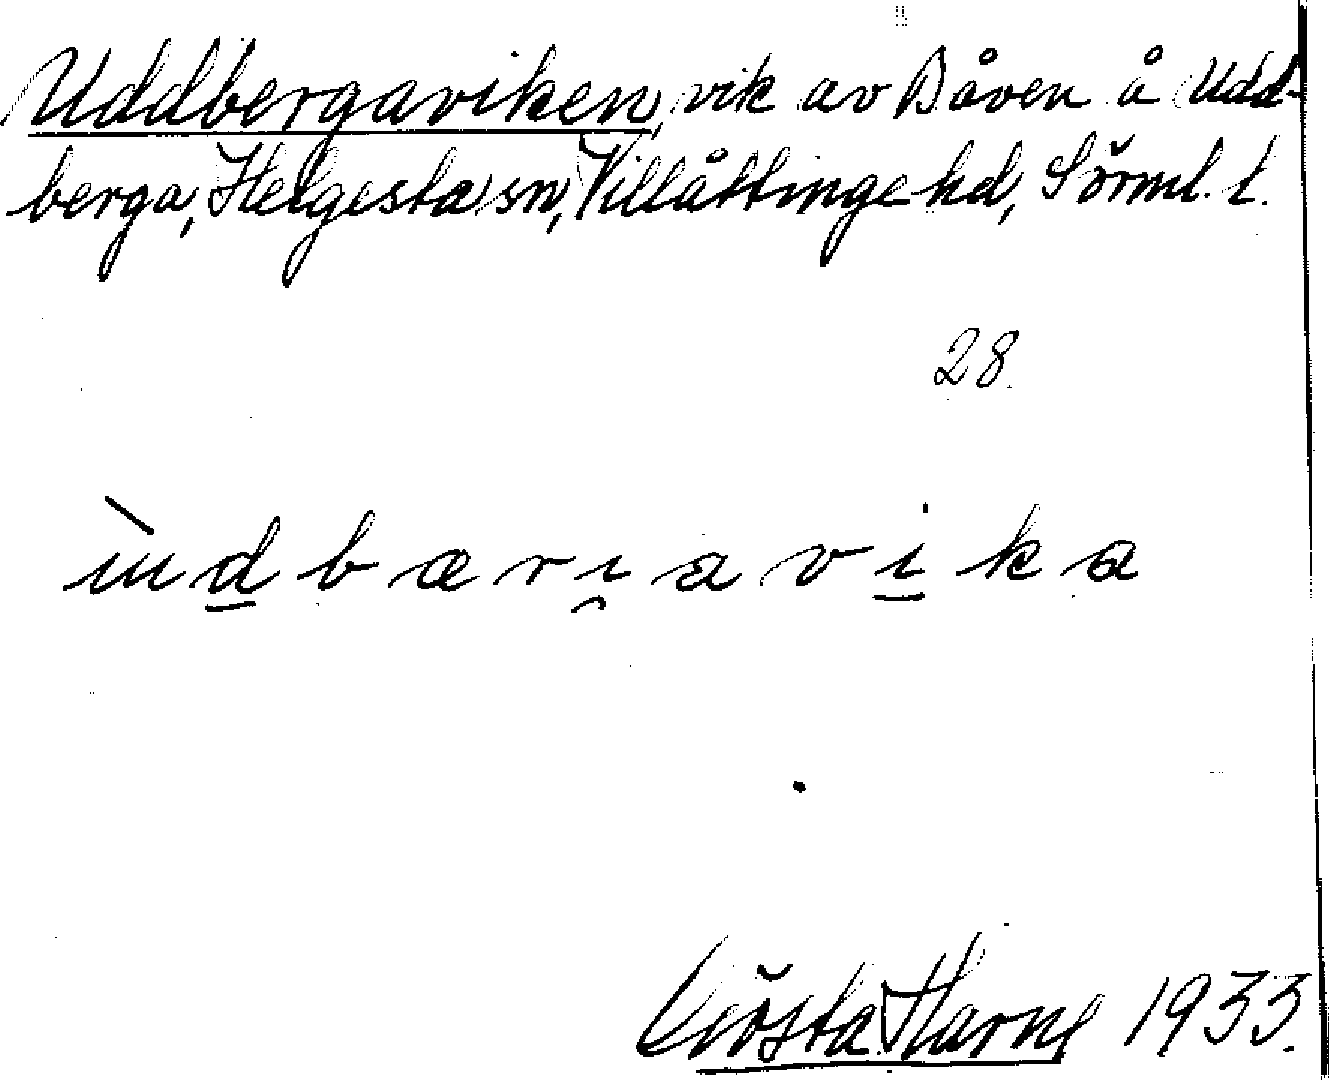 Uddbergaviken, vik av Båven å Udd-
berga, Helgesta sn, Villåttinge hd, Sörml. l.
28.
ùdbæri̯avika
Gösta Harne 1933.